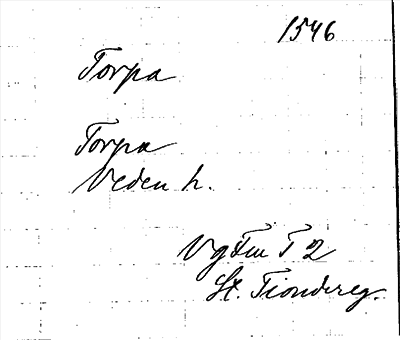 1546
Torpa
Torpa
Veden h.
Vg Fm T 2
St. Tiondereg.